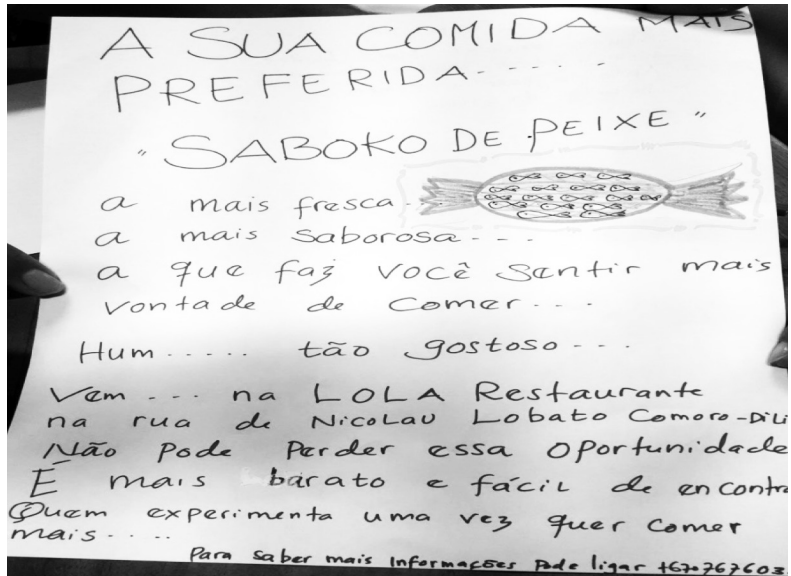 A SUA COMIDA MAIS
PREFERIDA- - - - -
"SABOKO DE PEIXE"
a mais fresca..
a mais saborosa - - -
a que faz você sentir mais
vontade de comer - - -
Hum ..... tão gostoso - - -
Vem --- na LOLA Restaurante
na rua de Nicolau Lobato Comoro-Dili
Não Pode Perder essa oportunidade
É mais barato e fácil de encontra
Quem experimenta uma vez quer comer
mais.....
Para saber mais Informações Pode ligar +670767603